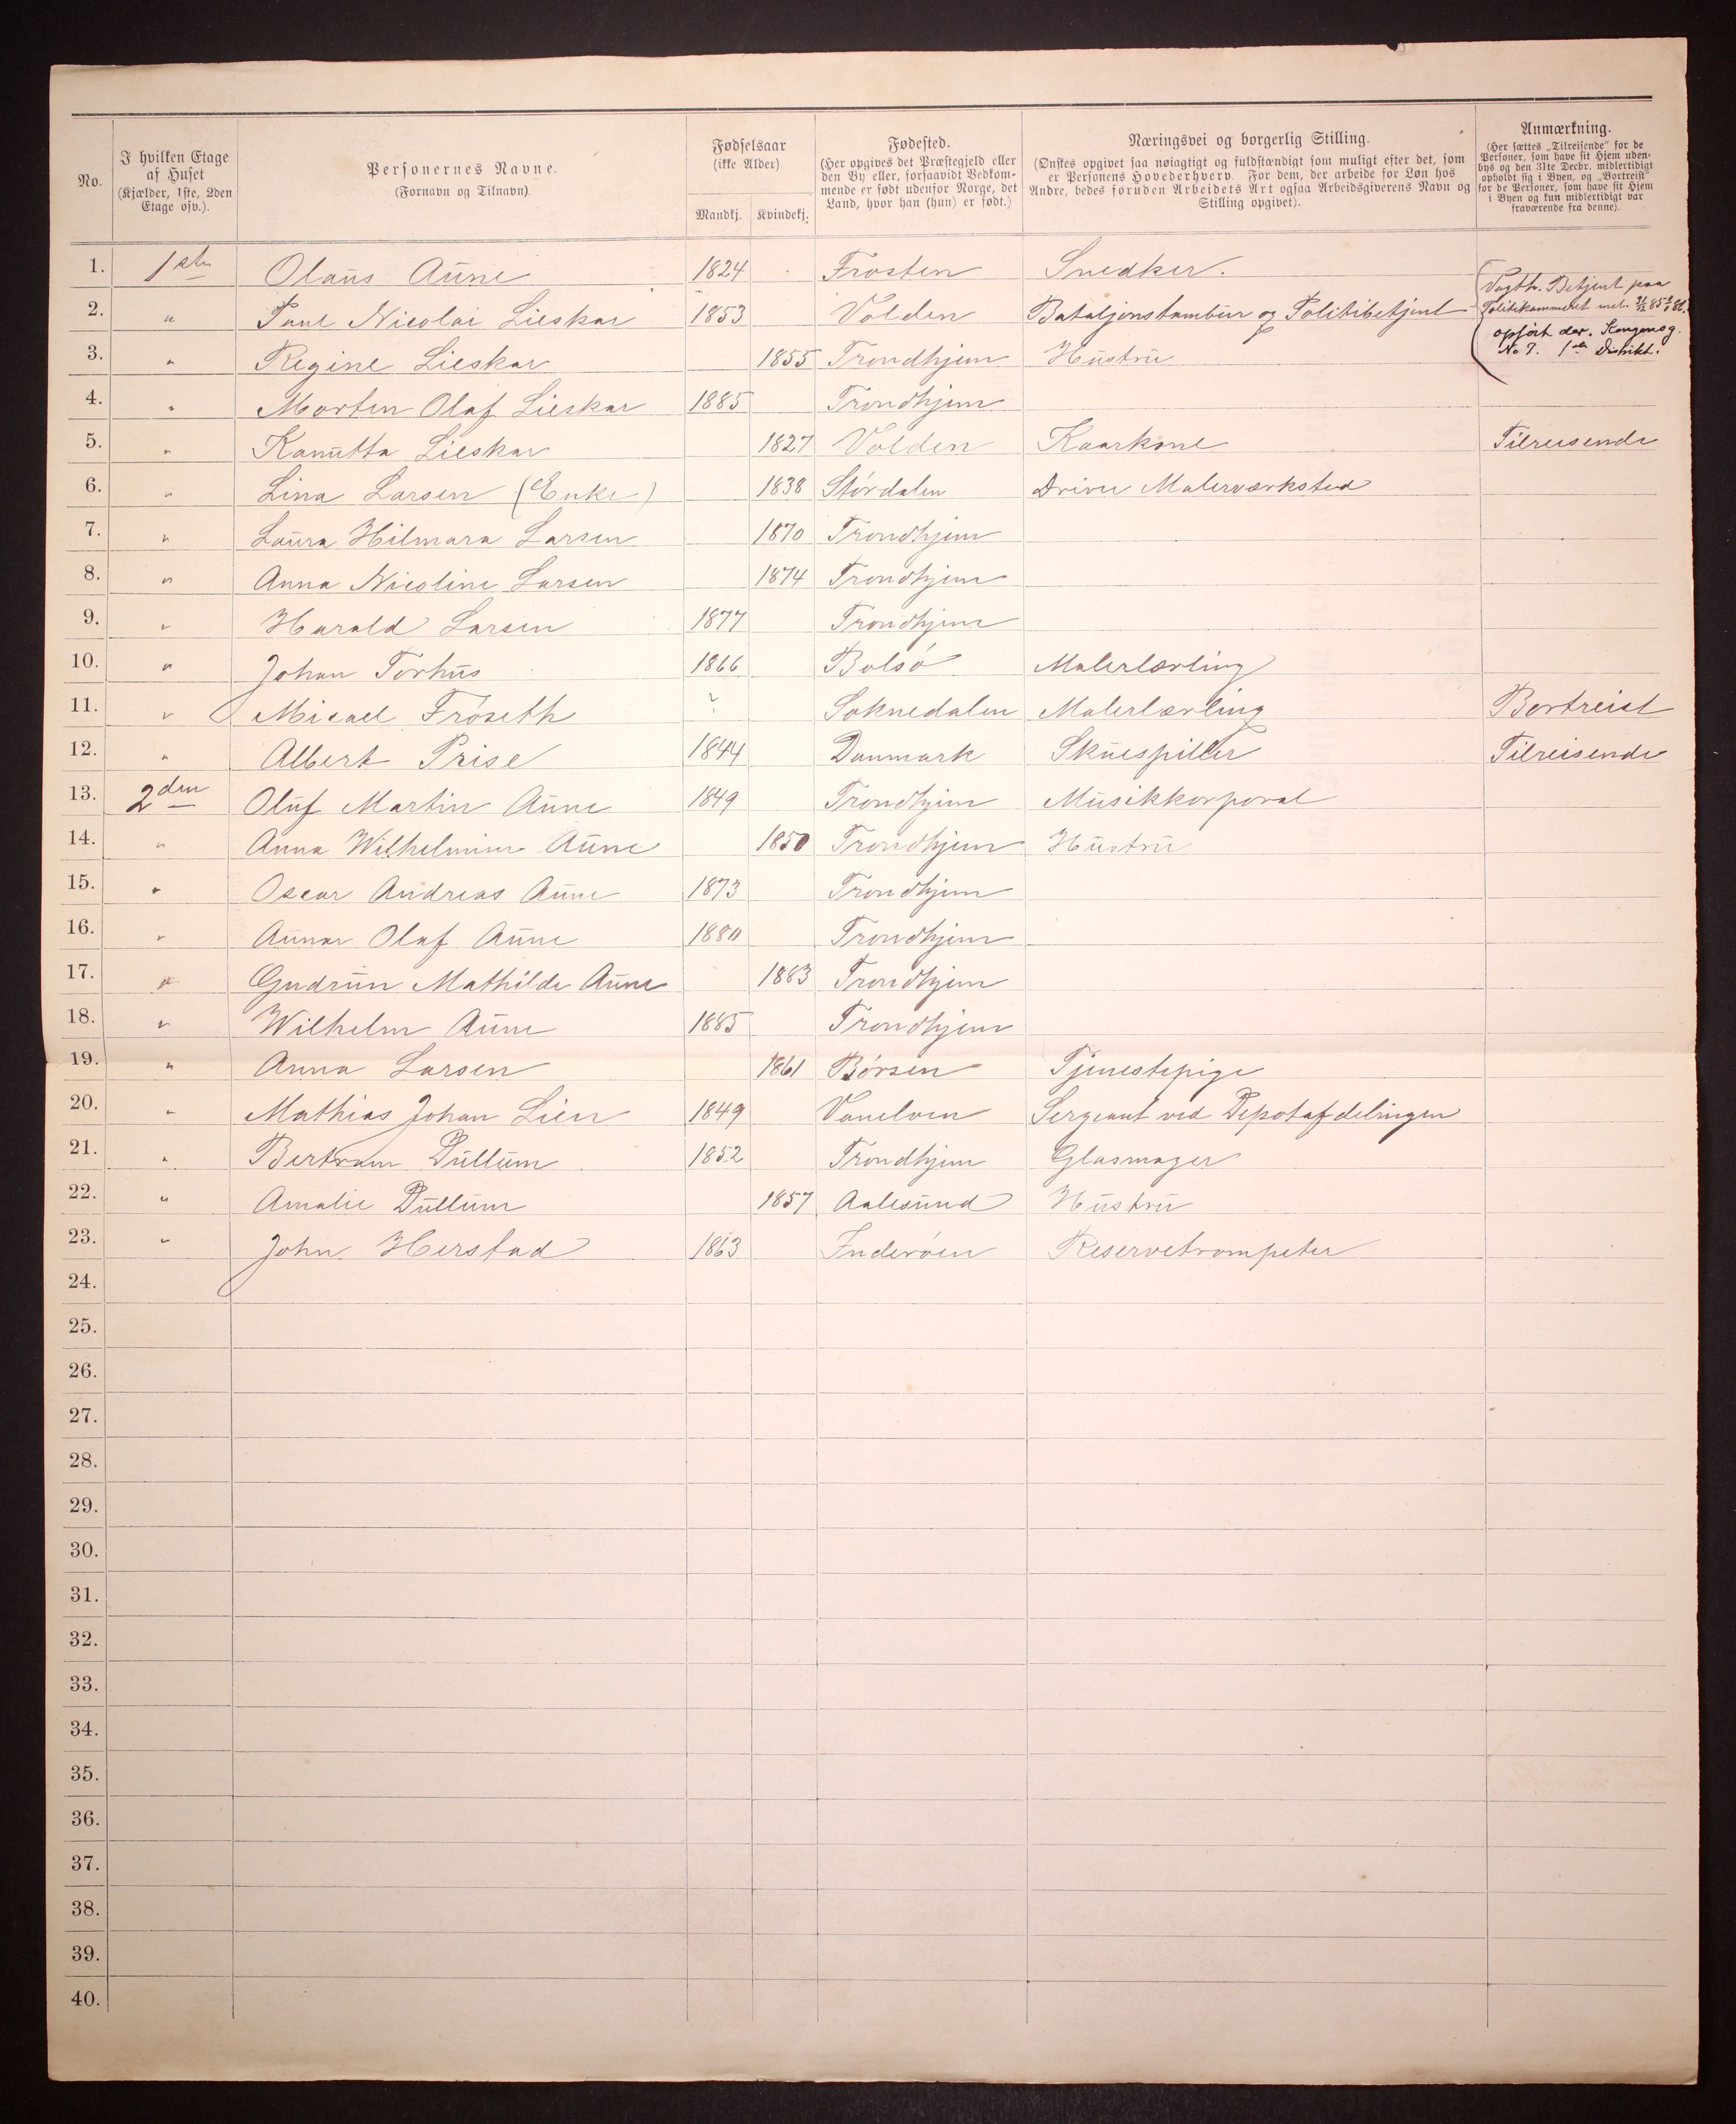 No.
I hvilken Etage
af Huset
(Kjælder, 1ste, 2den
Etage osv.).
Personernes Navne.
(Fornavn og Tilnavn).
Fødselsaar
(ikke Alder).
Mandkj. Kvindekj.
Fødested.
(Her opgives det Præstegjeld eller
den By eller, forsaavidt Vedkom-
mende er født udenfor Norge, det
Land, hvor han (hun) er født.)
Næringsvei og borgerlig Stilling.
(Ønskes opgivet saa nøiagtigt og fuldstændigt som muligt efter det, som
er Personens Hovederhverv. For dem, der arbeide for Løn hos
Andre, bedes foruden Arbeidets Art ogsaa Arbeidsgiverens Navn og
Stilling opgivet).
Anmærkning.
(Her sættes „Tilreisende“ for de
Personer, som have sit Hjem uden-
bys og den 31te Decbr. midlertidigt
opholdt sig i Byen, og „Bortreist“
for de Personer, som have sit Hjem
i Byen og kun midlertidigt var
fraværende fra denne).
1. 1ste Olaus Aune 1824 Frosten Snedker.
2. " Paul Nicolai Lieskar 1853 Volden Bataljonstambur og Politibetjent
Vagth. Betjent paa
Politikammeret
opført der. Kongensg.
No 7. 1ste Distrikt.
3. " Regine Lieskar 1855 Trondhjem Hustru
4. " Morten Olaf Lieskar 1885 Trondhjem
5. " Kanutta Lieskar 1827 Volden Kaarkone Tilreisende
6. " Lina Larsen (Enke) 1838 Størdalen Driver Malerværksted
7. " Laura Hilmara Larsen 1870 Trondhjem
8. " Anna Nicoline Larsen 1874 Trondhjem
9. " Harald Larsen 1877 Trondhjem
10. " Johan Torhus 1866 Bolsø Malerlærling
11. " Micael Frøseth ? Soknedalen Malerlærling Bortreist
12. " Albert Prise 1844 Danmark Skuespiller Tilreisende
13. 2den Oluf Martin Aune 1849 Trondhjem Musikkorporal
14. " Anna Wilhelmine Aune 1850 Trondhjem Hustru
15. " Oscar Andreas Aune 1873 Trondhjem
16. " Aunar Olaf Aune 1880 Trondhjem
17. " Gudrun Mathilde Aune 1883 Trondhjem
18. " Wilhelm Aune 1885 Trondhjem
19. " Anna Larsen 1861 Børsen Tjenestepige
20. " Mathias Johan Lien 1849 Vanelven Sergeant ved Depotafdelingen
21. " Bertram Dullum 1852 Trondhjem Glasmager
22. " Amalie Dullum 1857 Aalesund Hustru
23. " John Herstad 1863 Inderøen Reservetrompeter
24.
25.
26.
27.
28.
29.
30.
31.
32.
33.
34.
35.
36.
37.
38.
39.
40.